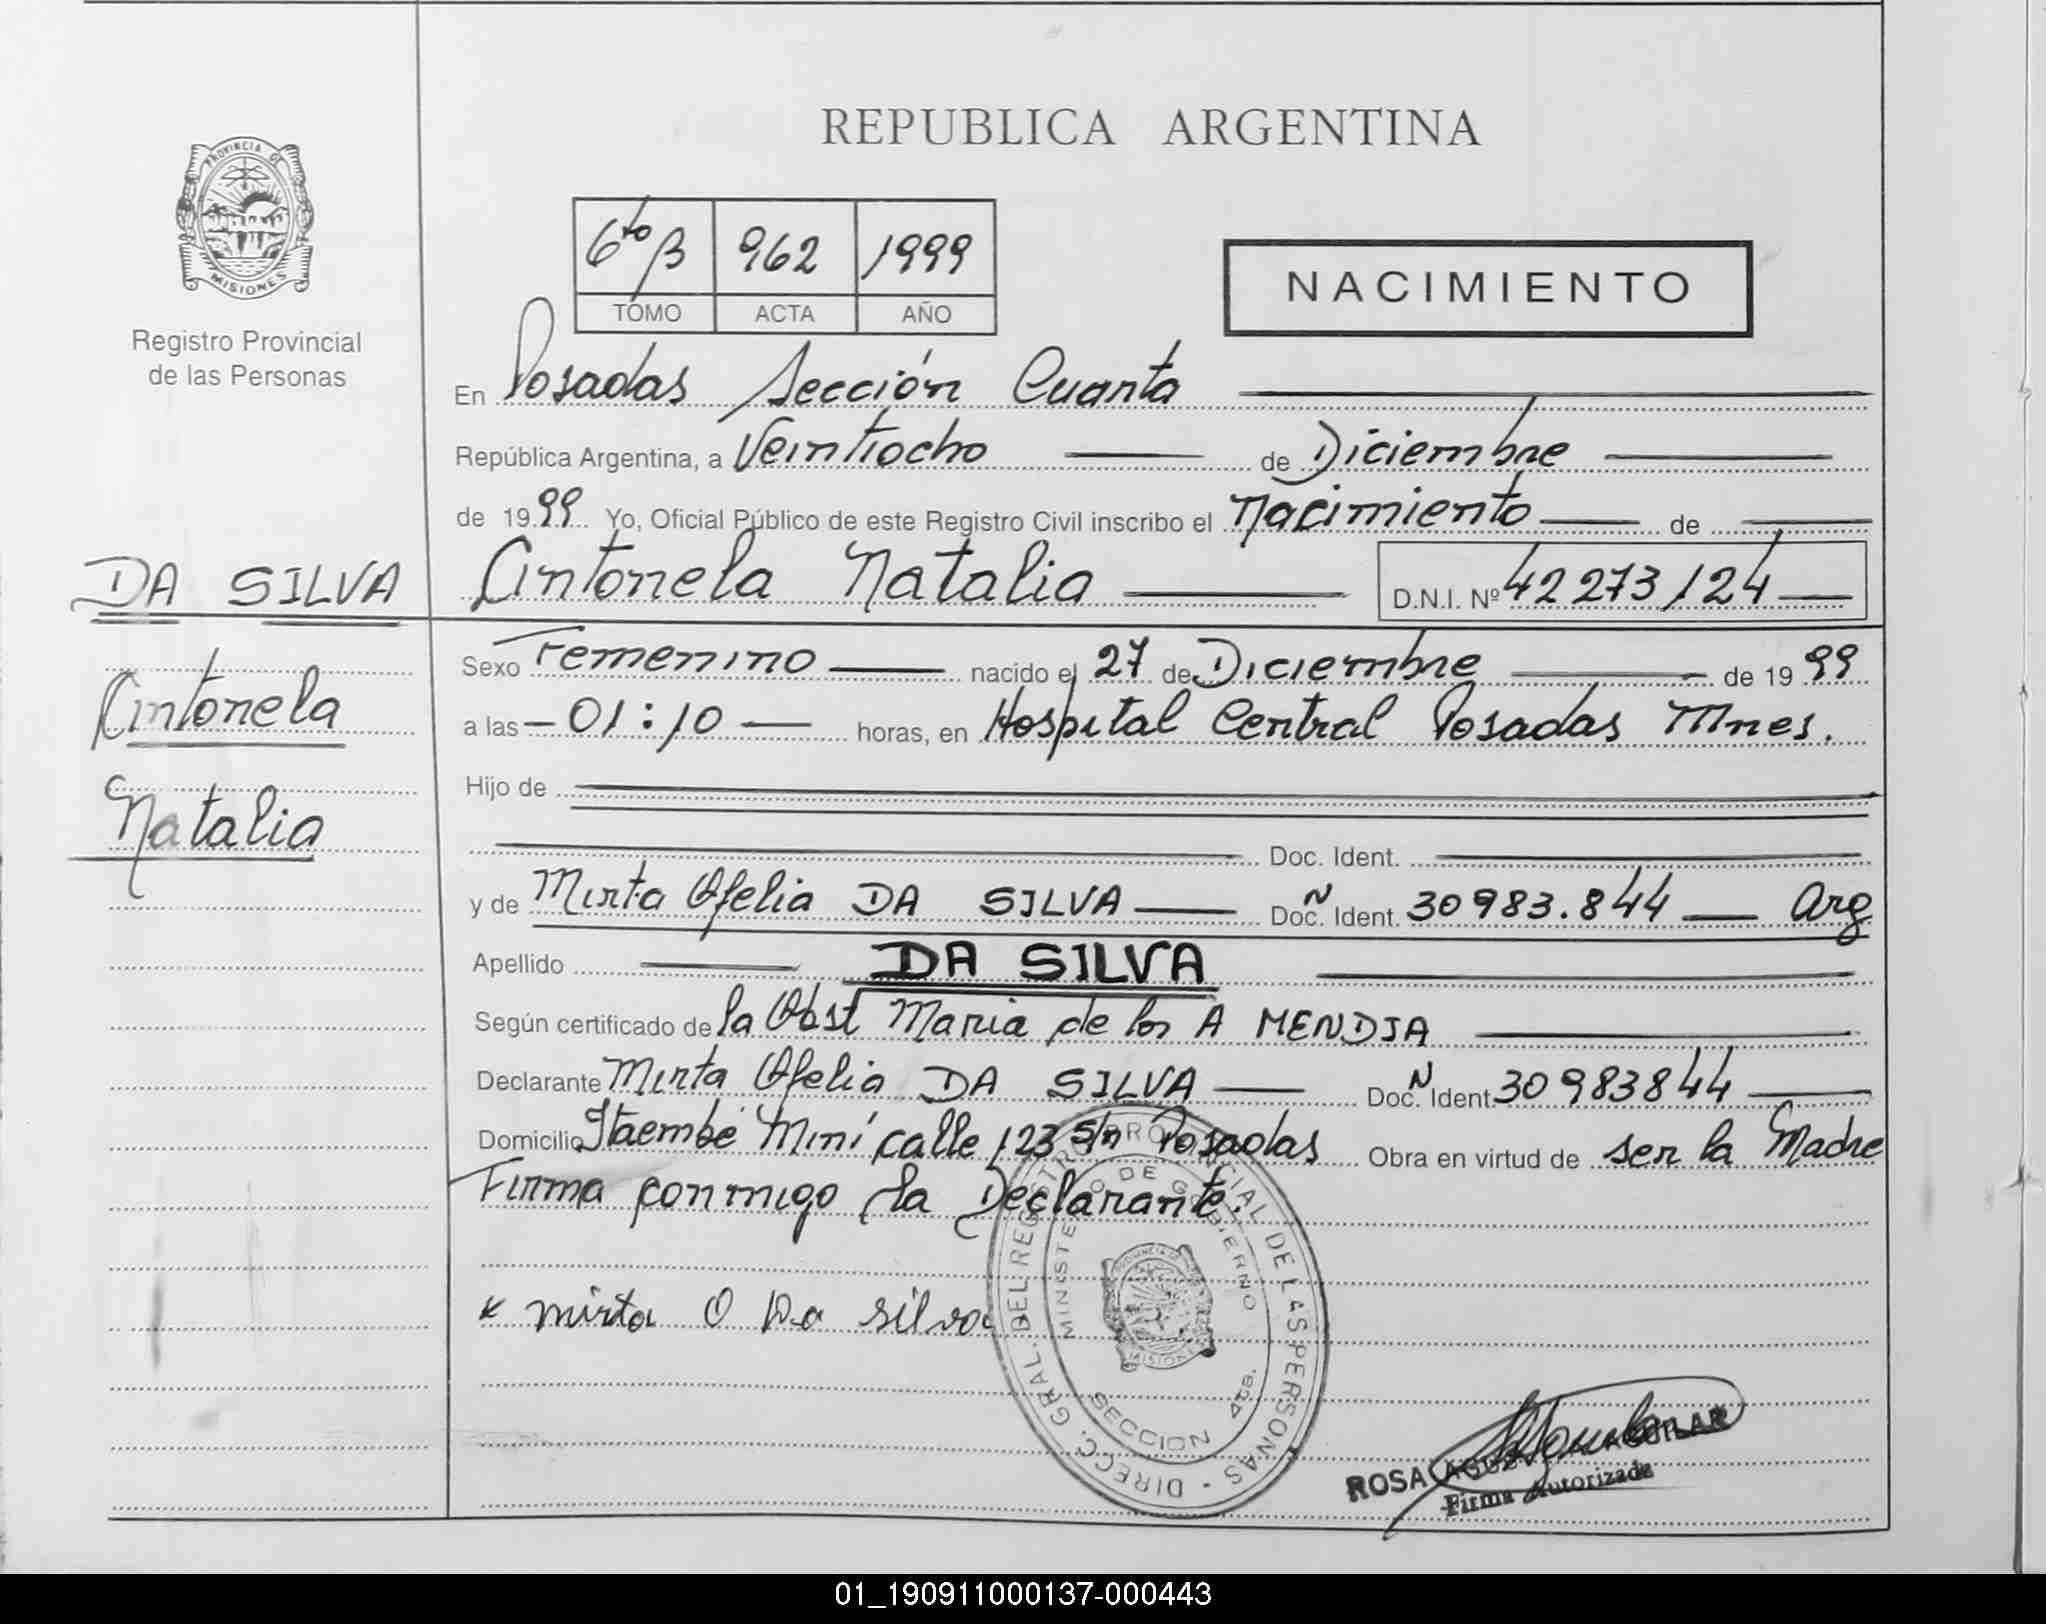 REPUBLICA ARGENTINA
PROVINCIA DE
MISIONES
Registro Provincial
de las Personas
6to B 962 1999
TOMO ACTA AÑO
NACIMIENTO
En Posadas Sección Cuarta
República Argentina, a Veintiocho de Diciembre
de 1999 Yo, Oficial Público de este Registro Civil inscribo el Nacimiento de
DA SILVA
Antonela Natalia D.N.I. Nº 42273124
Antonela
Natalia
Sexo Femenino nacido el 27 de Diciembre de 1999
a las 01:10 horas, en Hospital Central Posadas Mnes.
Hijo de
Doc. Ident.
y de Mirta Ofelia DA SILVA Doc. N Ident. 30983.844 Arg
Apellido DA SILVA
Según certificado de la Obst Maria de los A MENDIA
Declarante Mirta Ofelia DA SILVA Doc. N Ident. 30983844
Domicilio Itaembé Miní calle 123 s/n Posadas Obra en virtud de ser la Madre
Firma conmigo la Declarante.
mirta O Da silva
DIRECC. GRAL. DEL REGISTRO PROVINCIAL DE LAS PERSONAS
MINISTERIO DE GOBIERNO
SECCION 4ta.
ROSA AGUILAR
Firma Autorizada
01_190911000137-000443